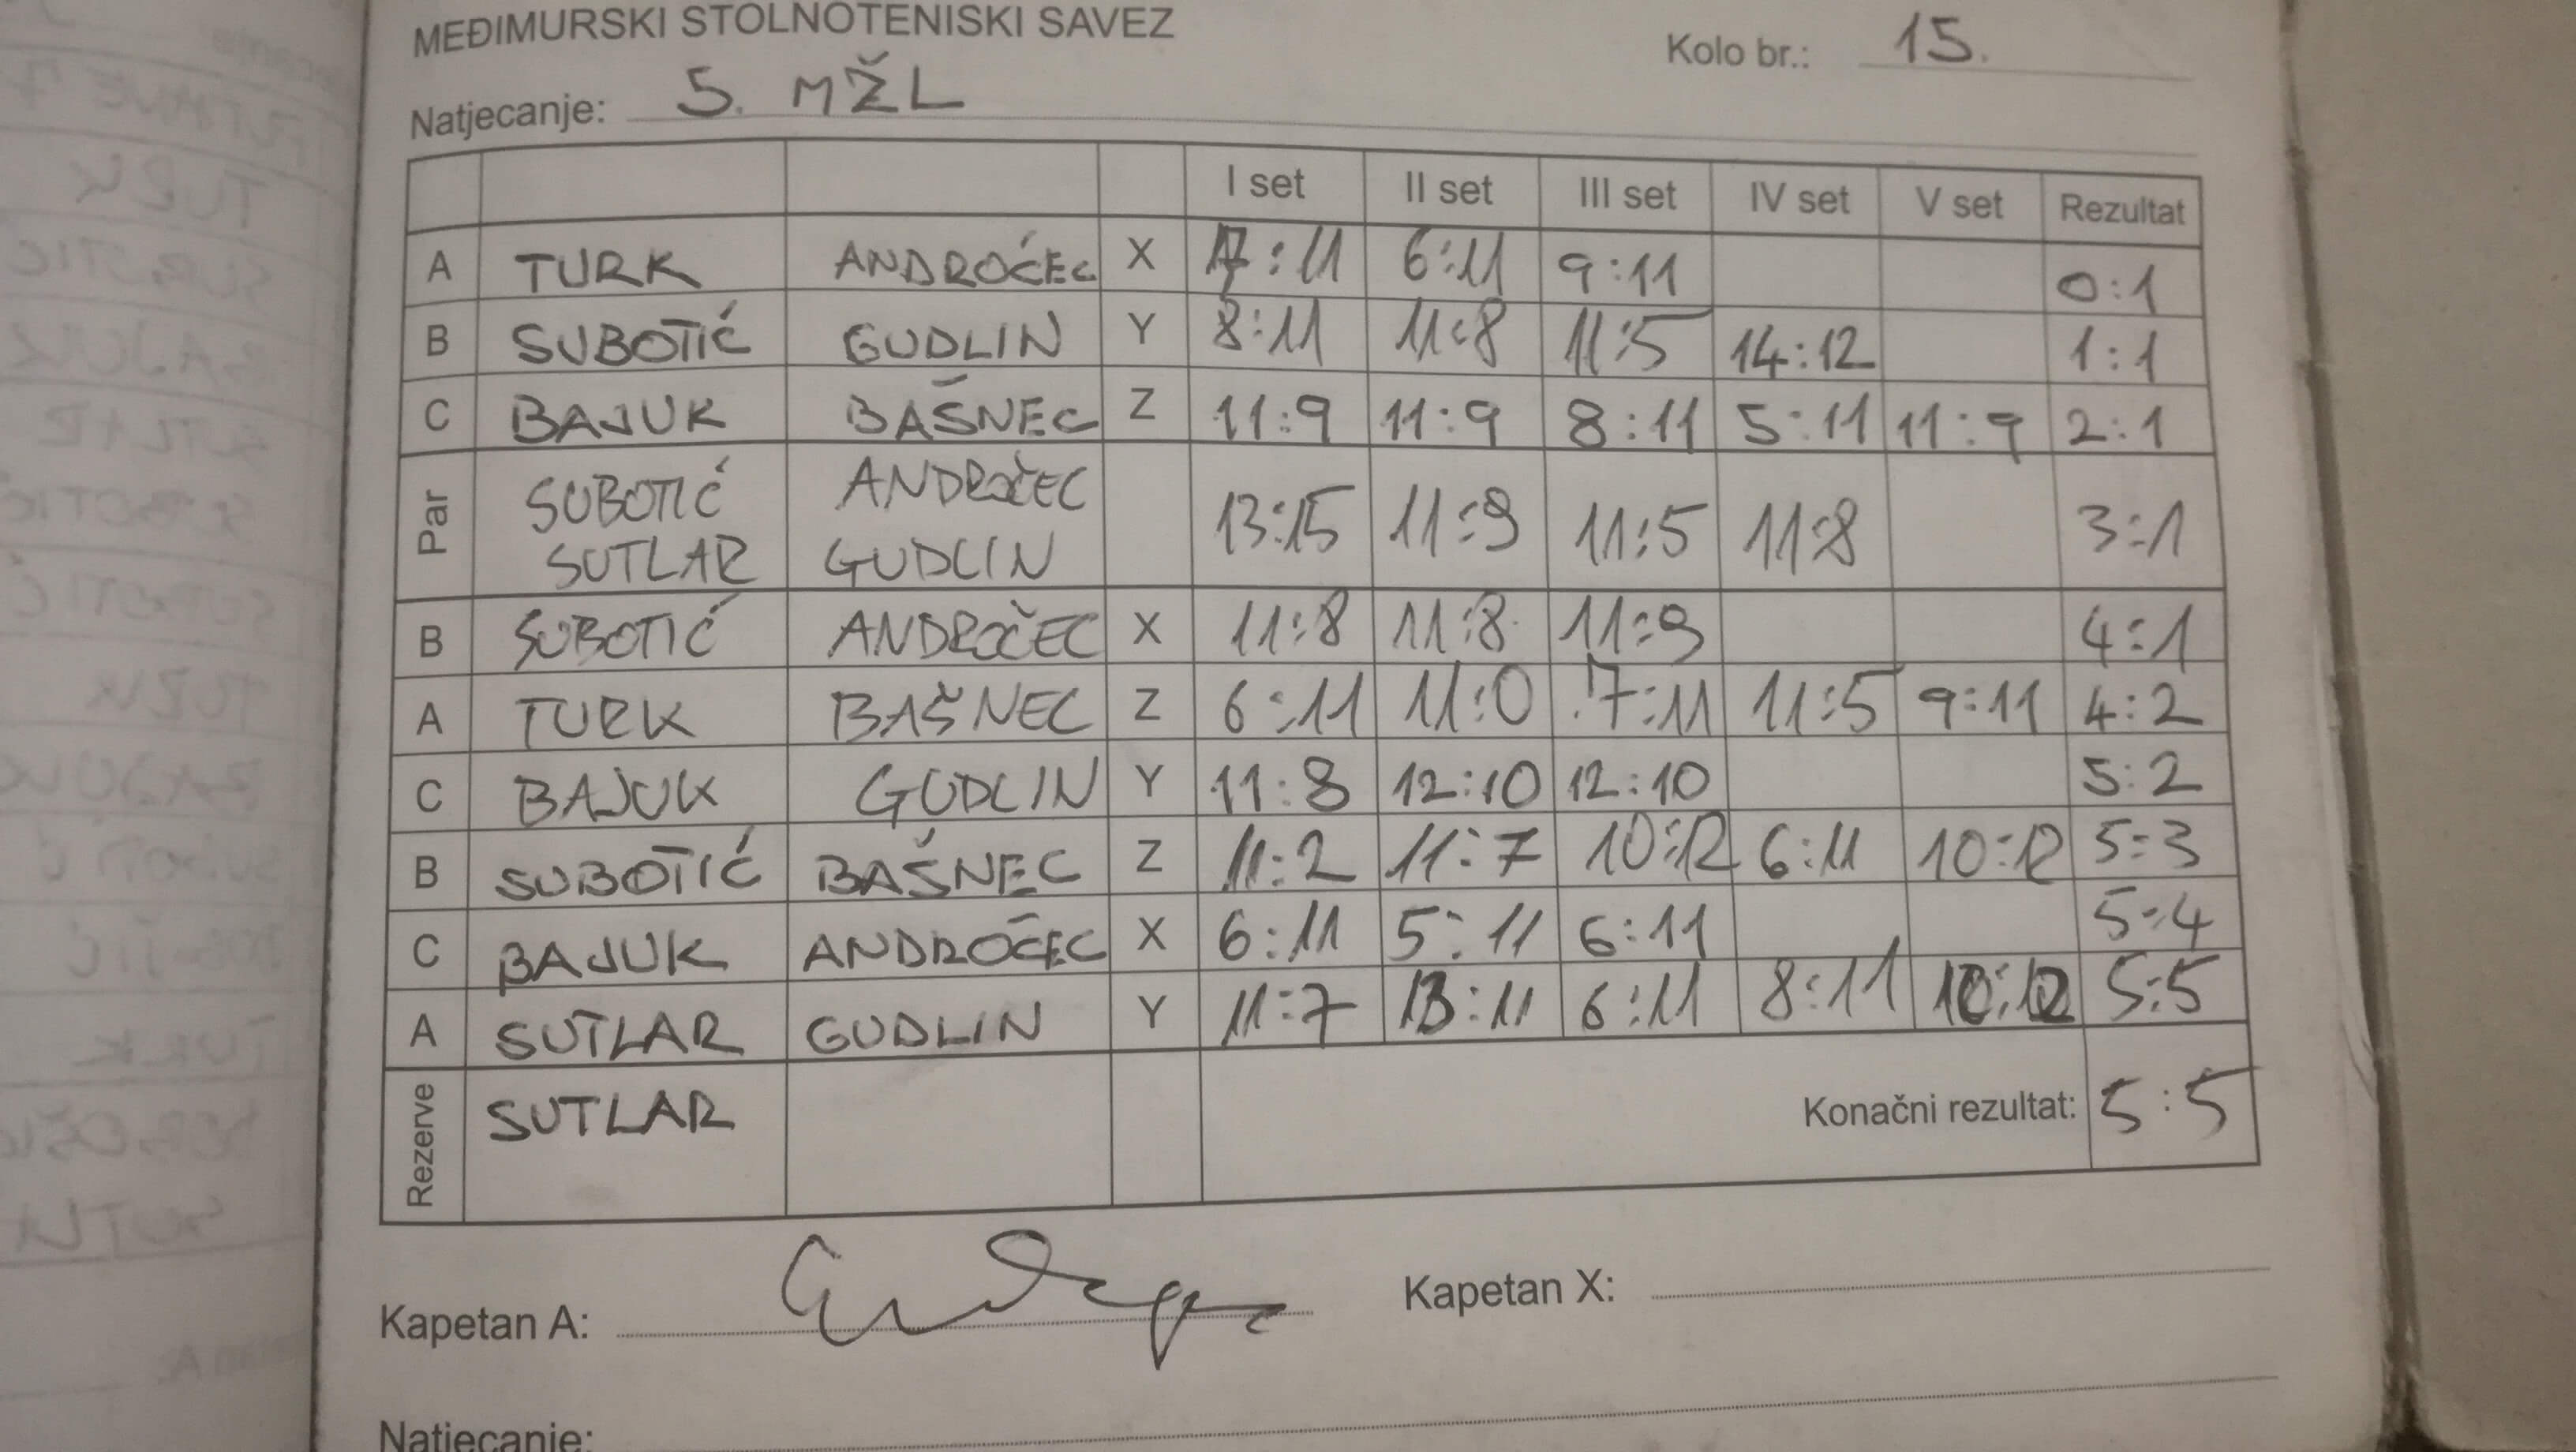 MEĐIMURSKI STOLNOTENISKI SAVEZ
Kolo br.: 15.
Natjecanje: 5. MŽL
I set II set III set IV set V set Rezultat
A TURK ANDROČEC X 7:11 6:11 9:11 0:1
B SUBOTIĆ GUDLIN Y 8:11 11:8 11:5 14:12 1:1
C BAJUK BAŠNEC Z 11:9 11:9 8:11 5:11 11:9 2:1
Par SUBOTIĆ ANDROČEC 13:15 11:9 11:5 11:8 3:1
SUTLAR GUDLIN
B SUBOTIĆ ANDROČEC X 11:8 11:8 11:9 4:1
A TURK BAŠNEC Z 6:11 11:0 7:11 11:5 9:11 4:2
C BAJUK GUDLIN Y 11:8 12:10 12:10 5:2
B SUBOTIĆ BAŠNEC Z 11:2 11:7 10:12 6:11 10:12 5:3
C BAJUK ANDROČEC X 6:11 5:11 6:11 5:4
A SUTLAR GUDLIN Y 11:7 13:11 6:11 8:11 10:12 5:5
Rezerve SUTLAR Konačni rezultat: 5:5
Kapetan A: Kapetan X:
Natjecanje: